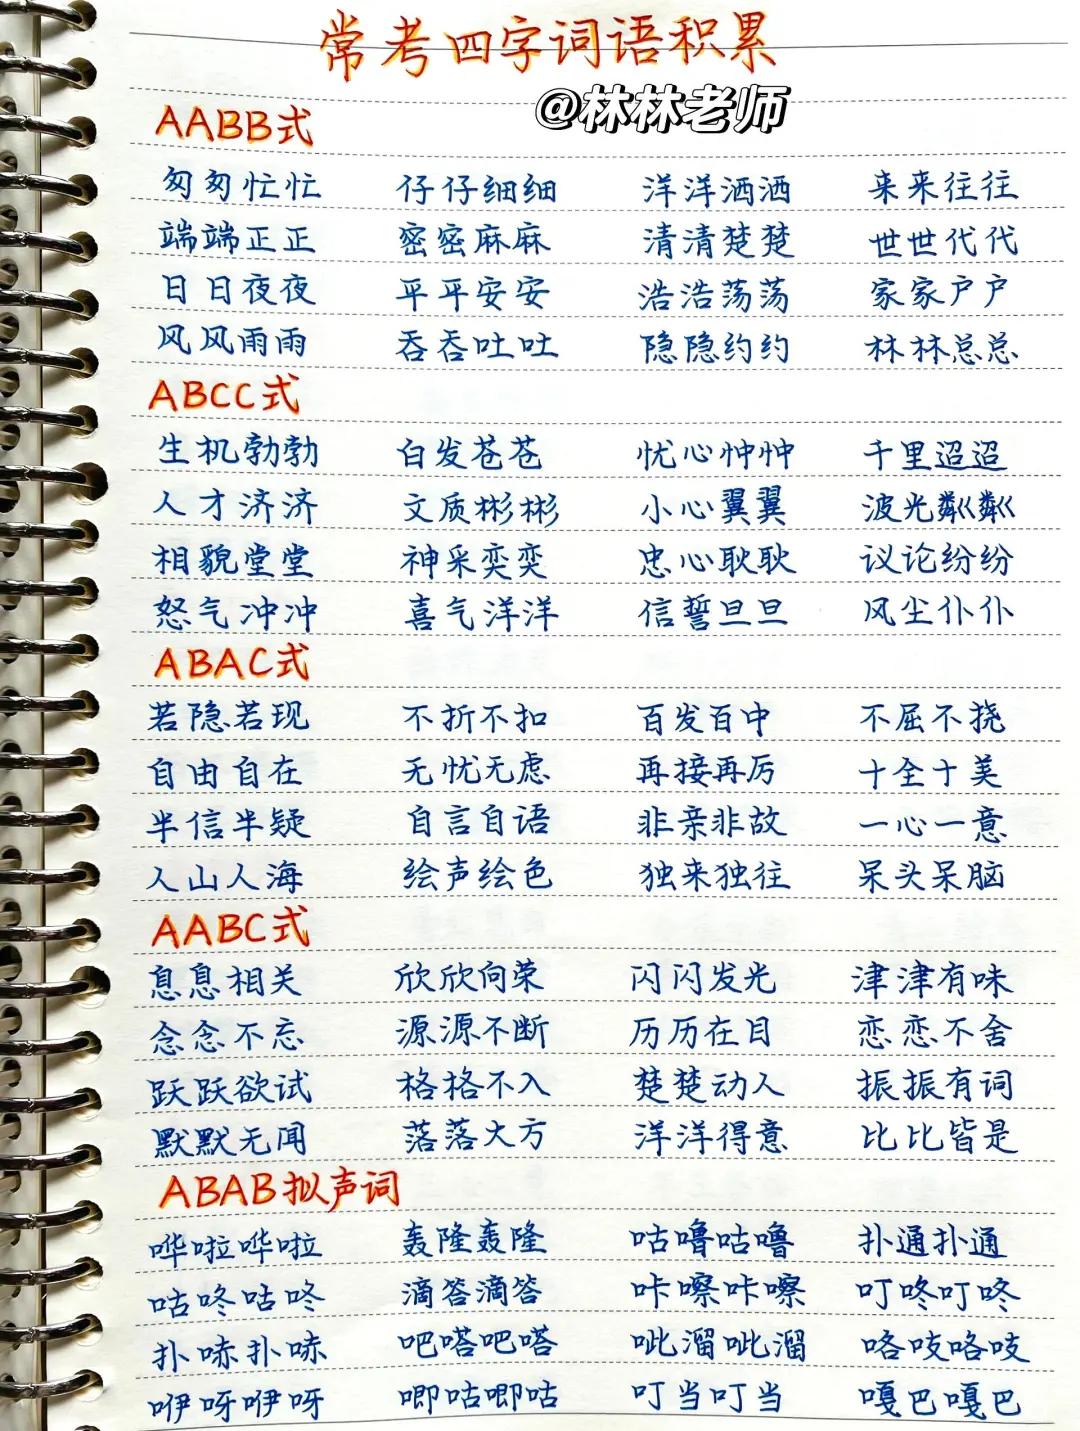 常考四字词语积累
@林林老师
AABB式
匆匆忙忙 仔仔细细 洋洋洒洒 来来往往
端端正正 密密麻麻 清清楚楚 世世代代
日日夜夜 平平安安 浩浩荡荡 家家户户
风风雨雨 吞吞吐吐 隐隐约约 林林总总
ABCC式
生机勃勃 白发苍苍 忧心忡忡 千里迢迢
人才济济 文质彬彬 小心翼翼 波光粼粼
相貌堂堂 神采奕奕 忠心耿耿 议论纷纷
怒气冲冲 喜气洋洋 信誓旦旦 风尘仆仆
ABAC式
若隐若现 不折不扣 百发百中 不屈不挠
自由自在 无忧无虑 再接再厉 十全十美
半信半疑 自言自语 非亲非故 一心一意
人山人海 绘声绘色 独来独往 呆头呆脑
AABC式
息息相关 欣欣向荣 闪闪发光 津津有味
念念不忘 源源不断 历历在目 恋恋不舍
跃跃欲试 格格不入 楚楚动人 振振有词
默默无闻 落落大方 洋洋得意 比比皆是
ABAB拟声词
哗啦哗啦 轰隆轰隆 咕噜咕噜 扑通扑通
咕咚咕咚 滴答滴答 咔嚓咔嚓 叮咚叮咚
扑哧扑哧 吧嗒吧嗒 呲溜呲溜 咯吱咯吱
咿呀咿呀 唧咕唧咕 叮当叮当 嘎巴嘎巴